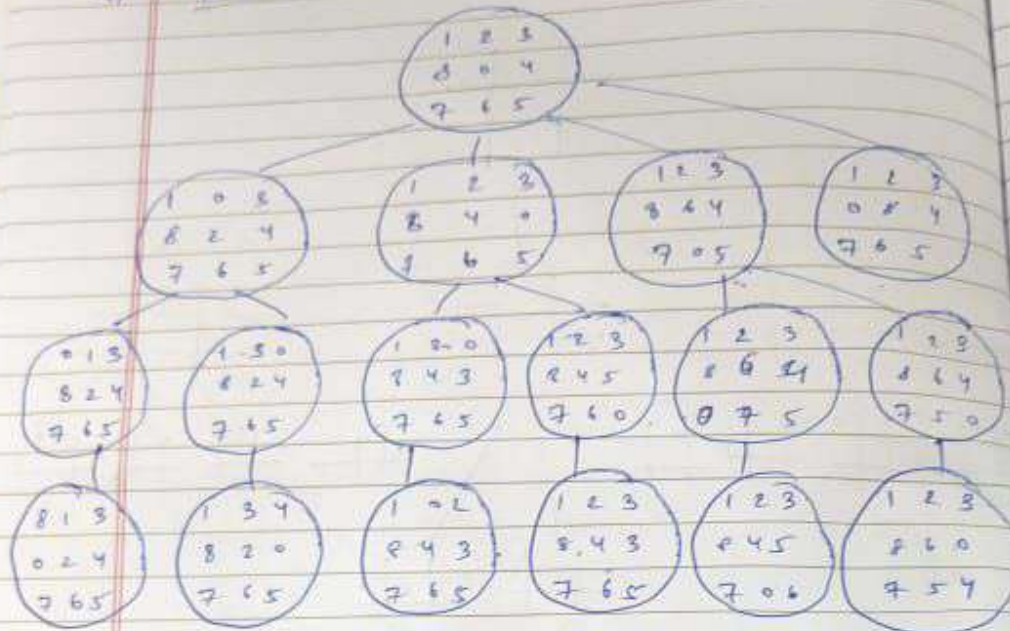 1 2 3
8 0 4
7 6 5
1 0 3
8 2 4
7 6 5
1 2 3
8 4 0
7 6 5
1 2 3
8 6 4
7 0 5
1 2 3
0 8 4
7 6 5
0 1 3
8 2 4
7 6 5
1 3 0
8 2 4
7 6 5
1 2 0
8 4 3
7 6 5
1 2 3
8 4 5
7 6 0
1 2 3
8 6 4
0 7 5
1 2 3
8 6 4
7 5 0
8 1 3
0 2 4
7 6 5
1 3 4
8 2 0
7 6 5
1 0 2
8 4 3
7 6 5
1 2 3
8 4 3
7 6 5
1 2 3
8 4 5
7 0 6
1 2 3
8 6 0
7 5 4